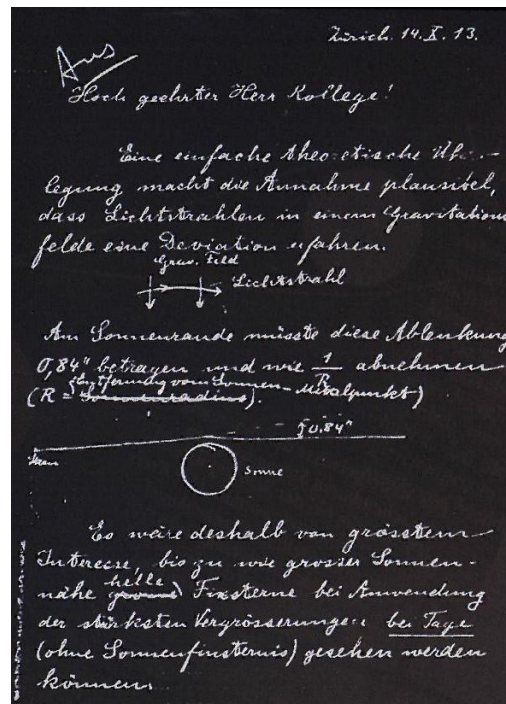 Zürich. 14. X. 13.
Hoch geehrter Herr Kollege!
Eine einfache theoretische Über-
legung macht die Annahme plausibel,
dass Lichtstrahlen in einem Gravitations
felde eine Deviation erfahren.
Grav. Feld
Lichtstrahl
Am Sonnenrande müsste diese Ablenkung
0,84" betragen und wie 1/R abnehmen
(R = Entfernung vom Sonnen-Mittelpunkt)
0.84"
Sonne
Es wäre deshalb von grösstem
Interesse, bis zu wie grosser Sonnen-
nähe helle Fixsterne bei Anwendung
der stärksten Vergrösserungen bei Tage
(ohne Sonnenfinsternis) gesehen werden
können.